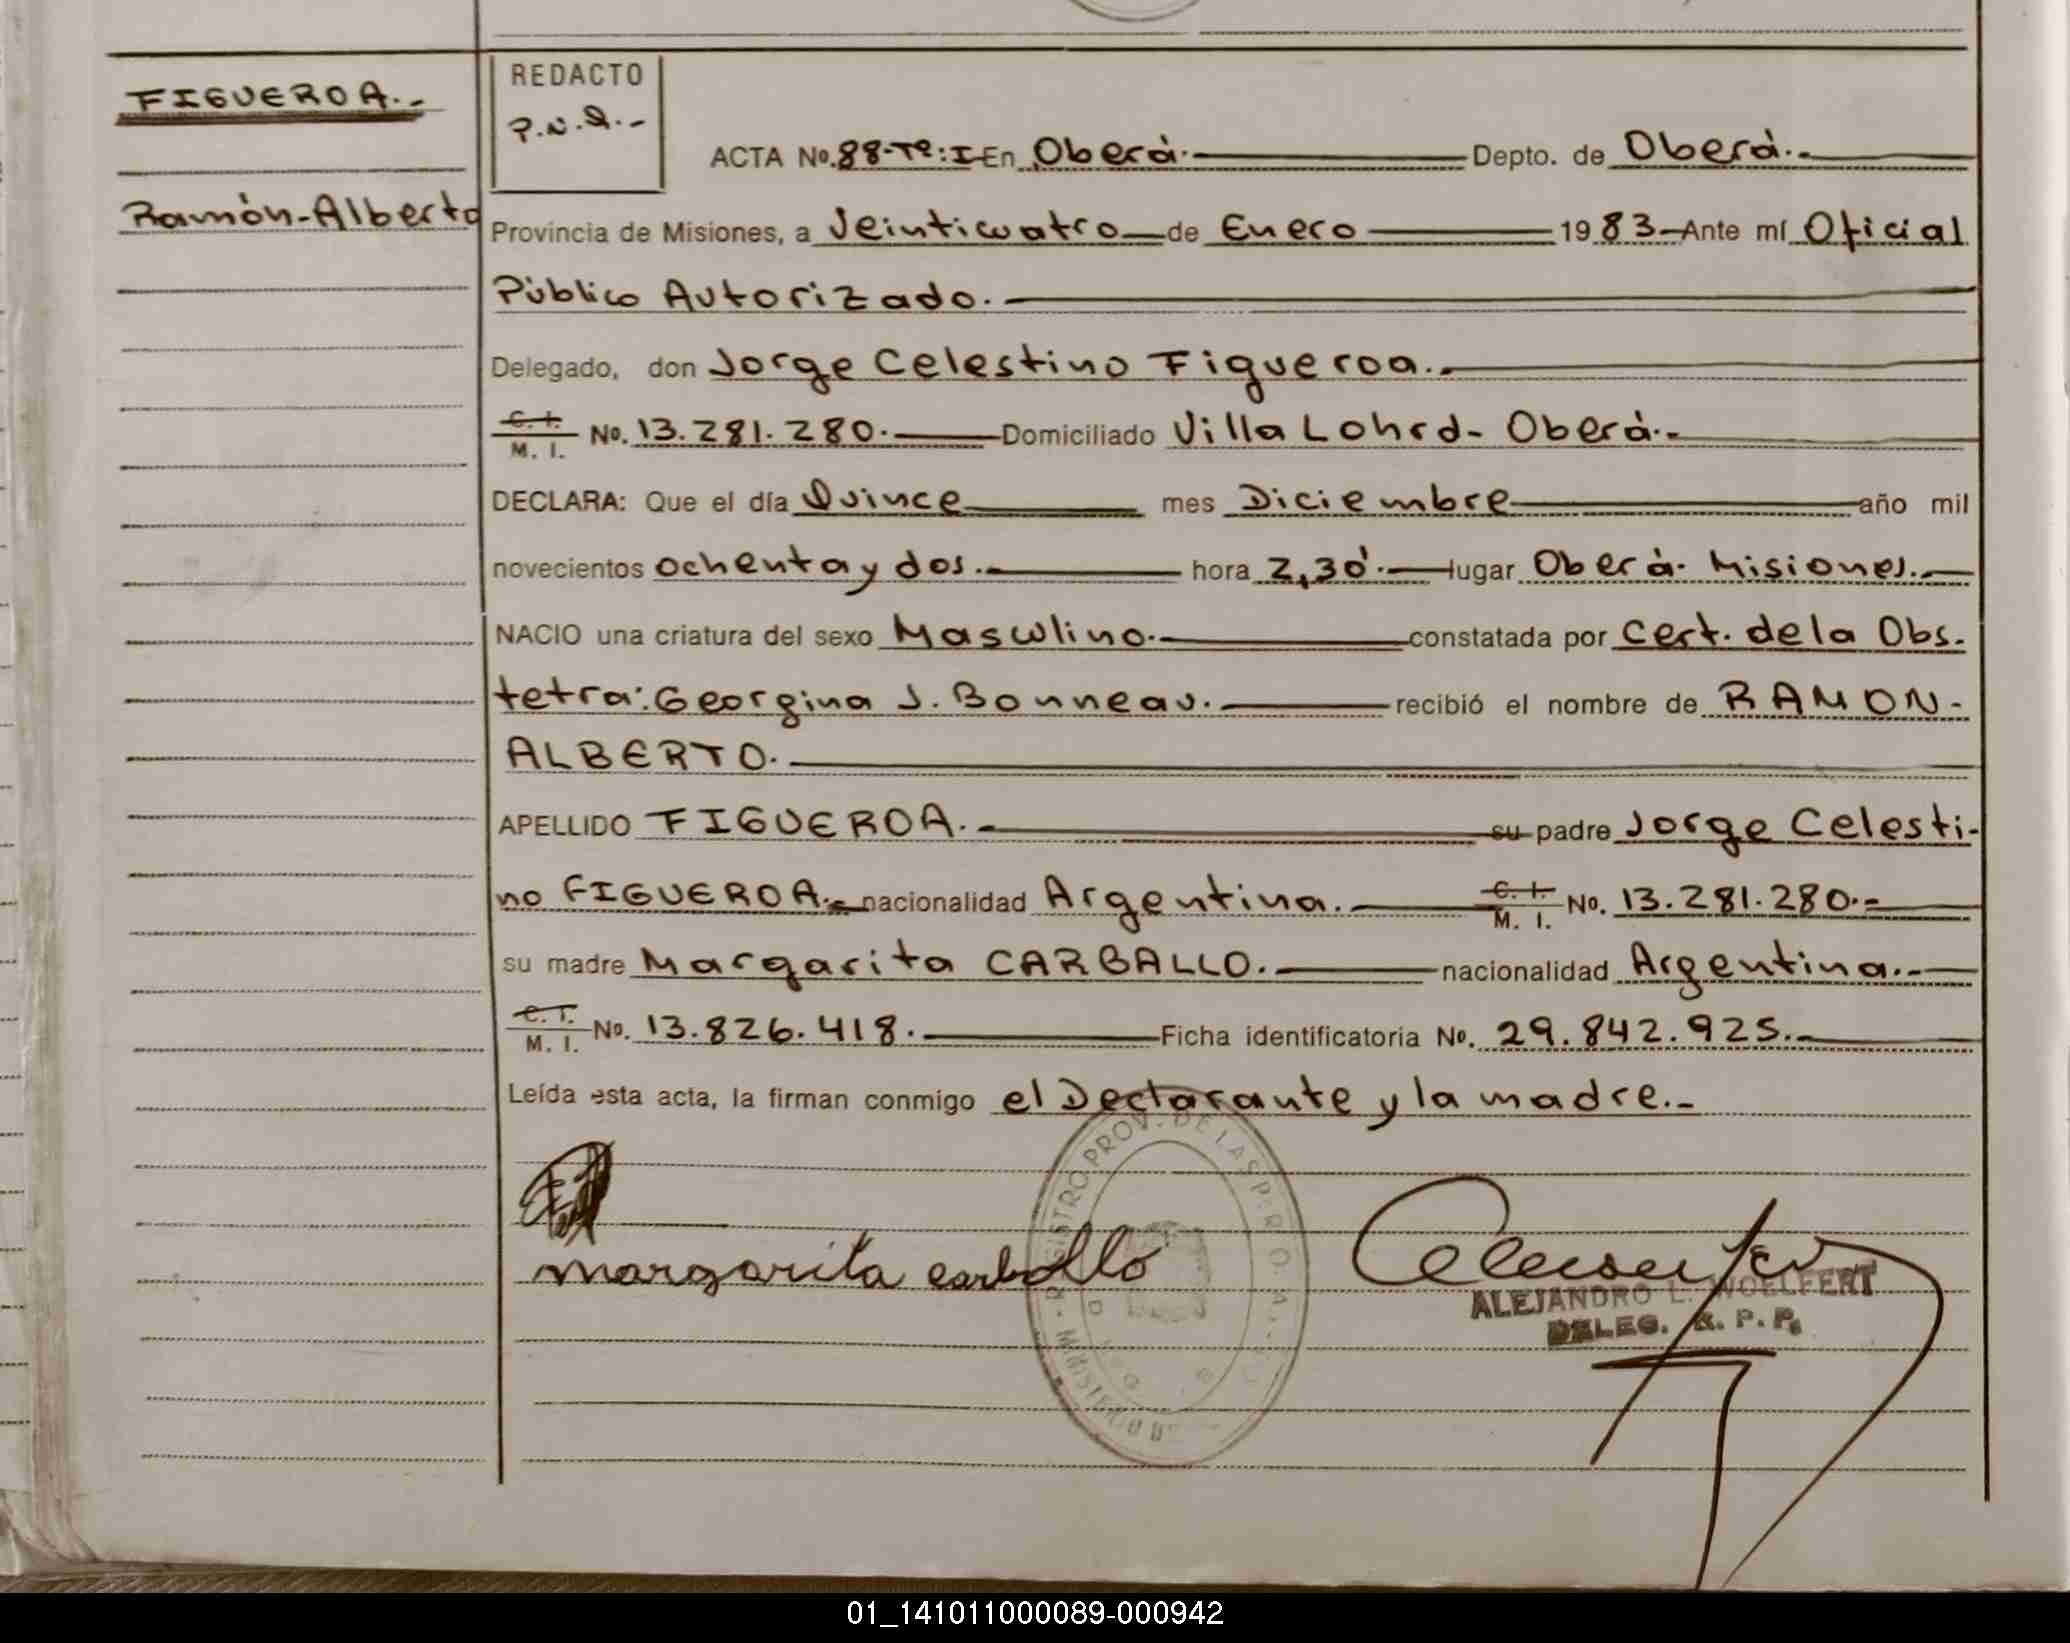 FIGUEROA.-
Ramón-Alberto
REDACTO
P.N.A.-
ACTA No. 88-Tº:I En Oberá. Depto. de Oberá.-
Provincia de Misiones, a Veinticuatro de Enero 1983 Ante mí Oficial
Público Autorizado.
Delegado, don Jorge Celestino Figueroa.-
C. I. / M. I. No. 13.281.280. Domiciliado Villa Lohrd- Oberá.-
DECLARA: Que el día Quince mes Diciembre año mil
novecientos ochenta y dos.- hora 2,30'. lugar Oberá. Misiones.-
NACIO una criatura del sexo Masculino. constatada por Cert. de la Obs-
tetra: Georgina J. Bonneau. recibió el nombre de RAMON-
ALBERTO.
APELLIDO FIGUEROA.- su padre Jorge Celesti-
no FIGUEROA.- nacionalidad Argentina. C. I. / M. I. No. 13.281.280.-
su madre Margarita CARBALLO. nacionalidad Argentina.-
C. I. / M. I. No. 13.826.418. Ficha identificatoria No. 29.842.925.-
Leída esta acta, la firman conmigo el Declarante y la madre.-
margarita carballo
REGISTRO PROV. DE LAS PERSO
ALEJANDRO L. WOELFERT
DELEG. R. P. P.
01_141011000089-000942